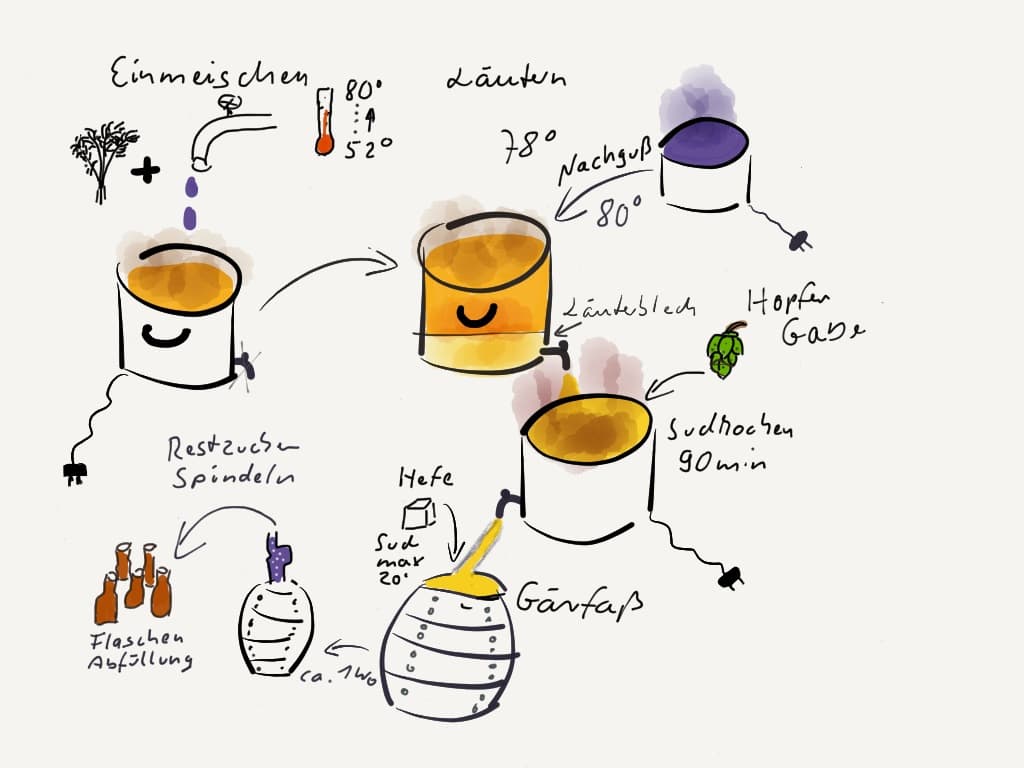 Einmeischen
80°
52°
+
Läutern
78°
Nachguß
80°
Läuterblech
Hopfen
Gabe
Sudkochen
90min
Hefe
Sud
max
20°
Gärfaß
ca. 1 Wo
Restzucker
Spindeln
Flaschen
Abfüllung